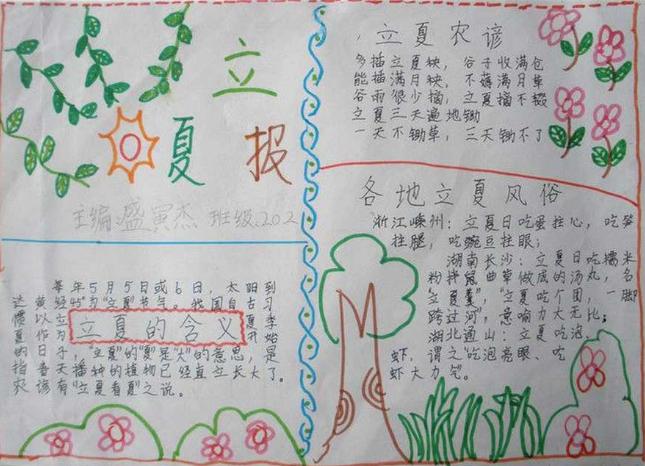 立
夏 报
主编:盛寅杰 班级:202
每年5月5日或6日,太阳到
达黄经45°为"立夏"节气。我国自古习
惯以立 夏
立夏的含义
作为 季
夏 开始
的日子,"立夏"的"夏"是"大"的意思,是
指春天播种的植物已经直立长大了。
农谚有"立夏看夏"之说。
立夏农谚
多插立夏秧,谷子收满仓
能插满月秧,不薅满月草
谷雨很少摘,立夏摘不辍
立夏三天遍地锄
一天不锄草,三天锄不了
各地立夏风俗
浙江嵊州:立夏日吃蛋拄心,吃笋
拄腿,吃豌豆拄眼;
湖南长沙:立夏日吃糯米
粉拌鼠曲草做成的汤丸,名
立夏羹","立夏吃个团,一脚
跨过河",意喻力大无比;
湖北通山:立夏吃泡、
虾,谓之"吃泡亮眼、吃
虾大力气。